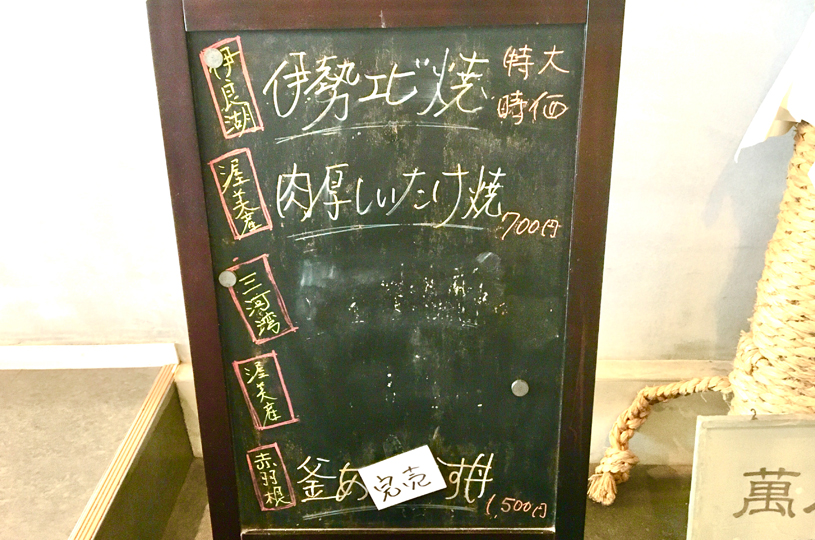 伊良湖
伊勢エビ焼
特大
時価
渥美産
肉厚しいたけ焼
700円
三河湾
渥美産
赤羽根
釜あ
完売
す丼
1,500円
2
萬